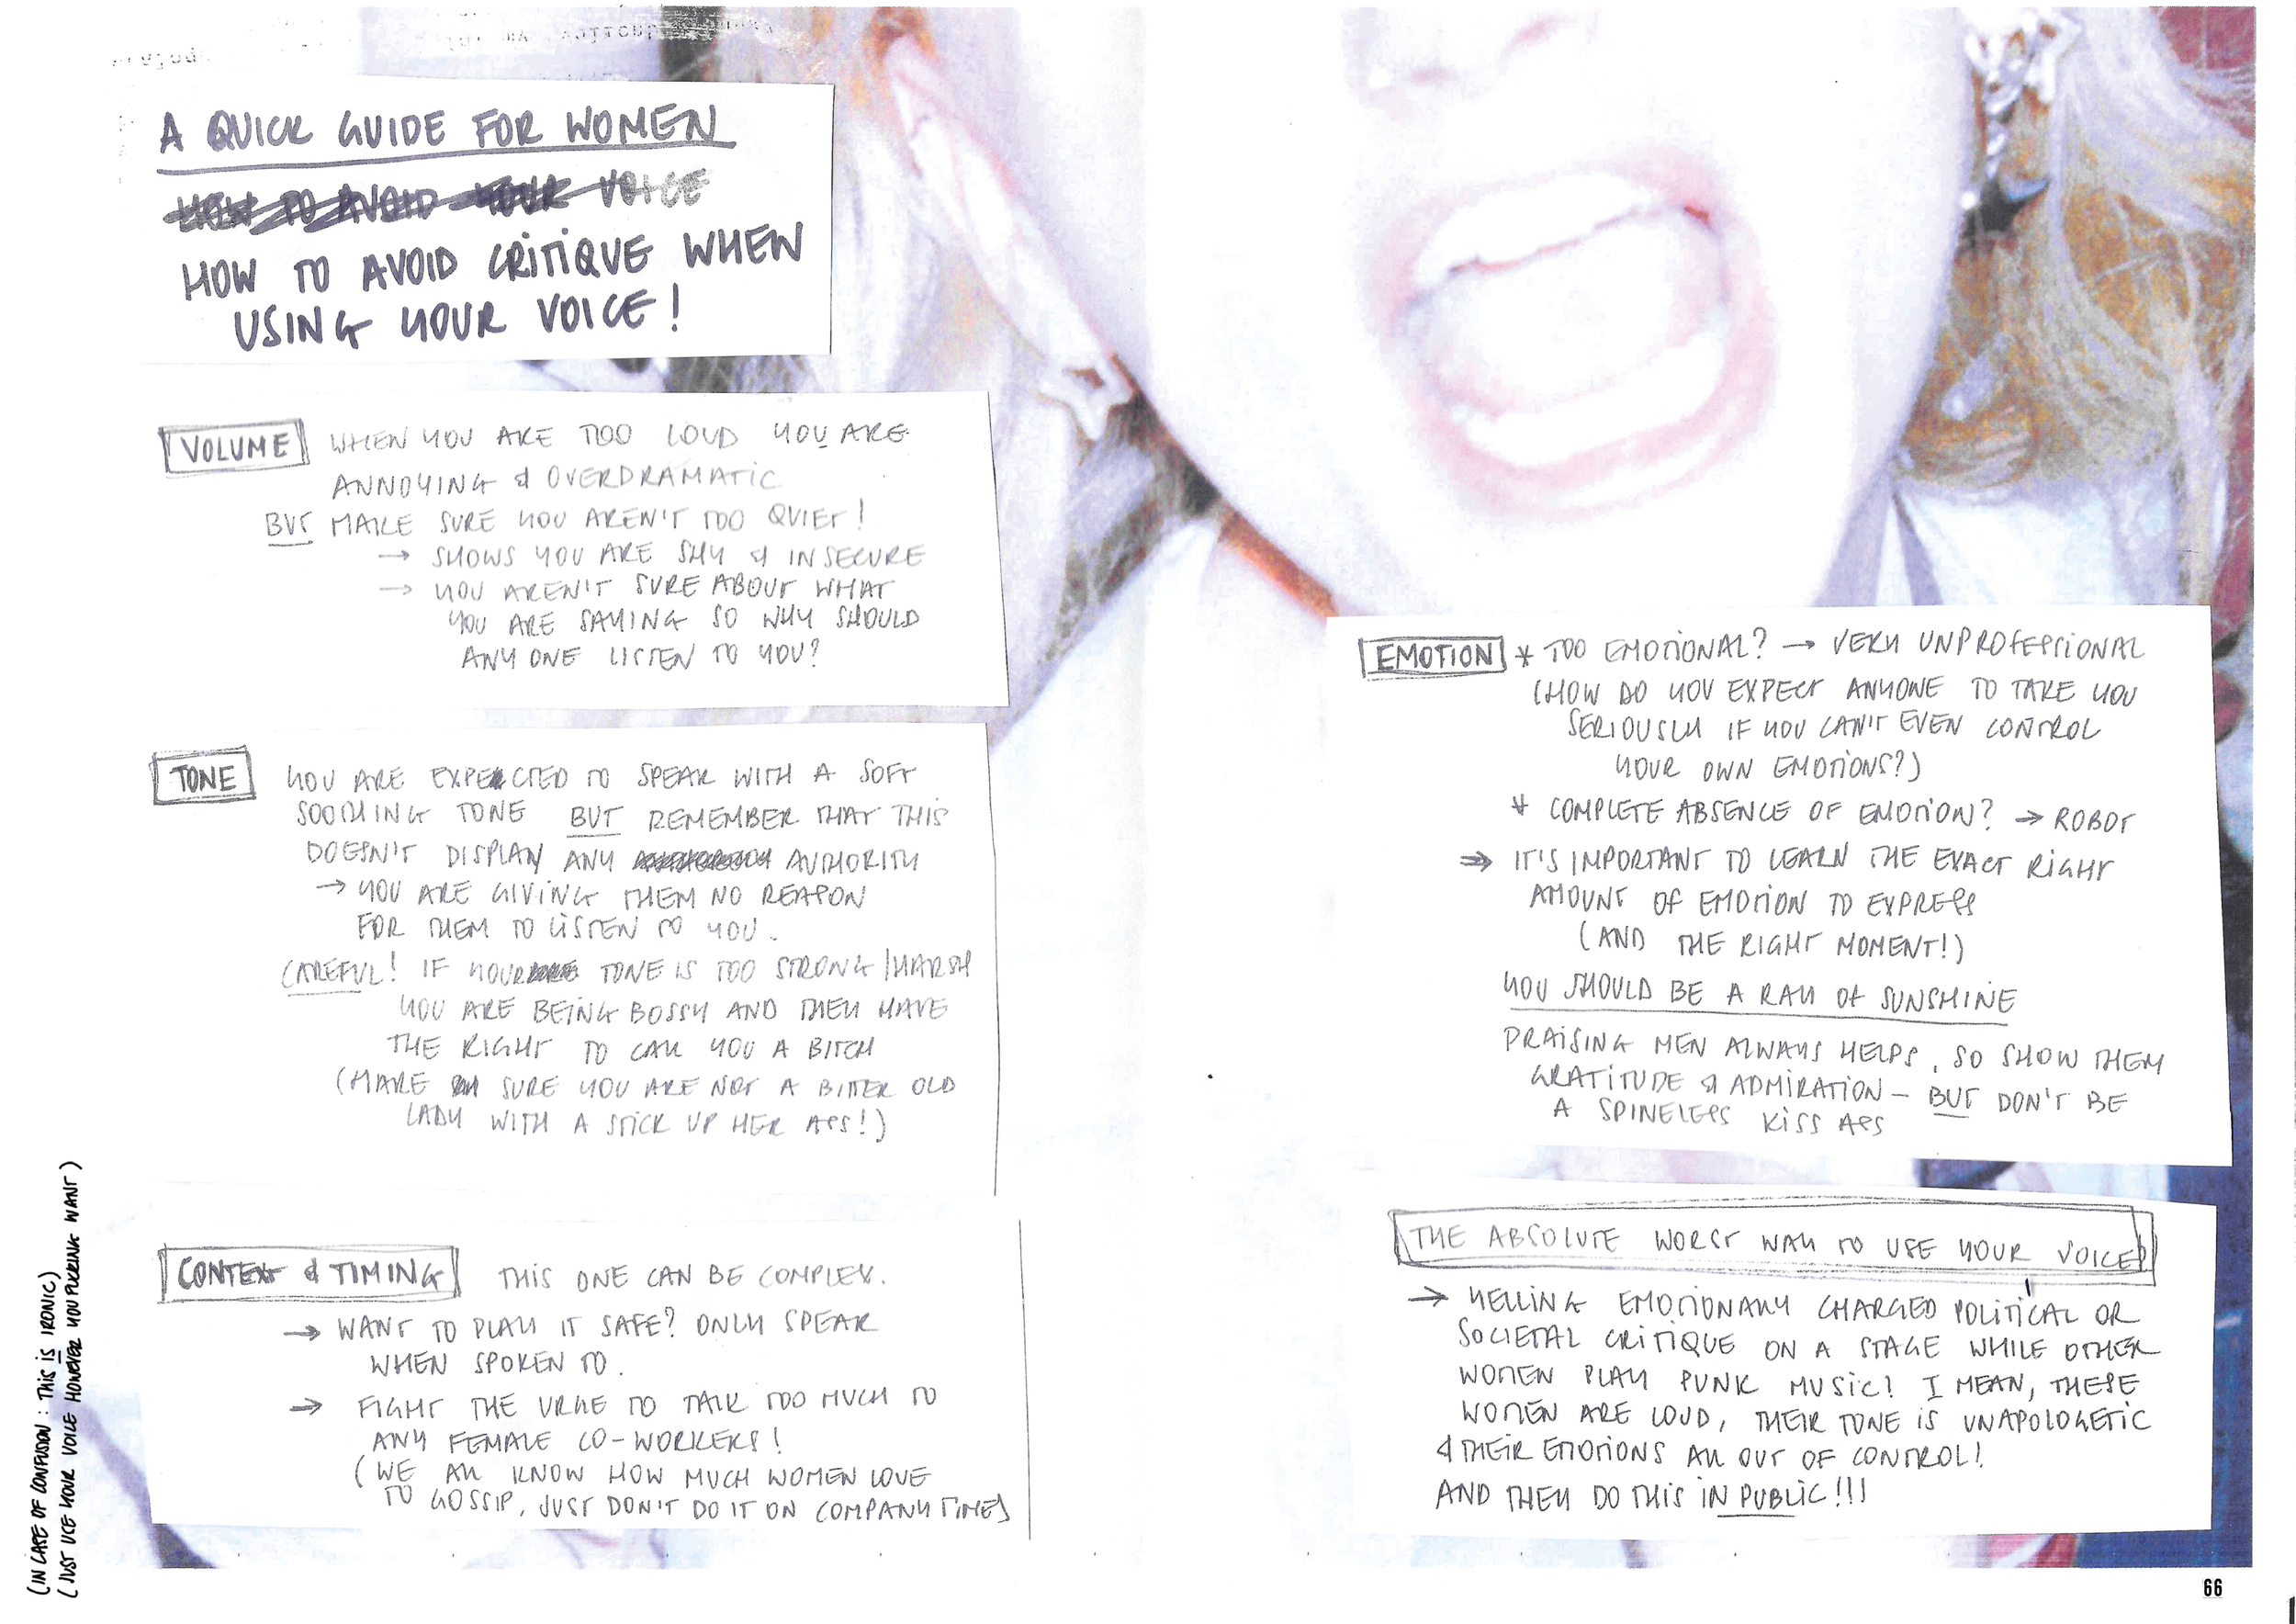 A QUICK GUIDE FOR WOMEN
HOW TO AVOID YOUR VOICE
HOW TO AVOID CRITIQUE WHEN
USING YOUR VOICE!
VOLUME WHEN YOU ARE TOO LOUD YOU ARE
ANNOYING & OVERDRAMATIC
BUT MAKE SURE YOU AREN'T TOO QUIET!
→ SHOWS YOU ARE SHY & INSECURE
→ YOU AREN'T SURE ABOUT WHAT
YOU ARE SAYING SO WHY SHOULD
ANYONE LISTEN TO YOU?
TONE YOU ARE EXPECTED TO SPEAK WITH A SOFT
SOOTHING TONE BUT REMEMBER THAT THIS
DOESN'T DISPLAY ANY AUTHORITY
→ YOU ARE GIVING THEM NO REASON
FOR THEM TO LISTEN TO YOU.
CAREFUL! IF YOUR TONE IS TOO STRONG/HARSH
YOU ARE BEING BOSSY AND THEY HAVE
THE RIGHT TO CALL YOU A BITCH
(MAKE SURE YOU ARE NOT A BITTER OLD
LADY WITH A STICK UP HER ASS!)
CONTEXT & TIMING THIS ONE CAN BE COMPLEX.
→ WANT TO PLAY IT SAFE? ONLY SPEAK
WHEN SPOKEN TO.
→ FIGHT THE URGE TO TALK TOO MUCH TO
ANY FEMALE CO-WORKERS!
(WE ALL KNOW HOW MUCH WOMEN LOVE
TO GOSSIP, JUST DON'T DO IT ON COMPANY TIME)
(IN CASE OF CONFUSION: THIS IS IRONIC)
(JUST USE YOUR VOICE HOWEVER YOU FUCKING WANT)
EMOTION * TOO EMOTIONAL? → VERY UNPROFESSIONAL
(HOW DO YOU EXPECT ANYONE TO TAKE YOU
SERIOUSLY IF YOU CAN'T EVEN CONTROL
YOUR OWN EMOTIONS?)
* COMPLETE ABSENCE OF EMOTION? → ROBOT
⇒ IT'S IMPORTANT TO LEARN THE EXACT RIGHT
AMOUNT OF EMOTION TO EXPRESS
(AND THE RIGHT MOMENT!)
YOU SHOULD BE A RAY OF SUNSHINE
PRAISING MEN ALWAYS HELPS, SO SHOW THEM
GRATITUDE & ADMIRATION – BUT DON'T BE
A SPINELESS KISS ASS
THE ABSOLUTE WORST WAY TO USE YOUR VOICE?
→ YELLING EMOTIONALLY CHARGED POLITICAL OR
SOCIETAL CRITIQUE ON A STAGE WHILE OTHER
WOMEN PLAY PUNK MUSIC! I MEAN, THESE
WOMEN ARE LOUD, THEIR TONE IS UNAPOLOGETIC
& THEIR EMOTIONS ALL OUT OF CONTROL!
AND THEY DO THIS IN PUBLIC!!!
66